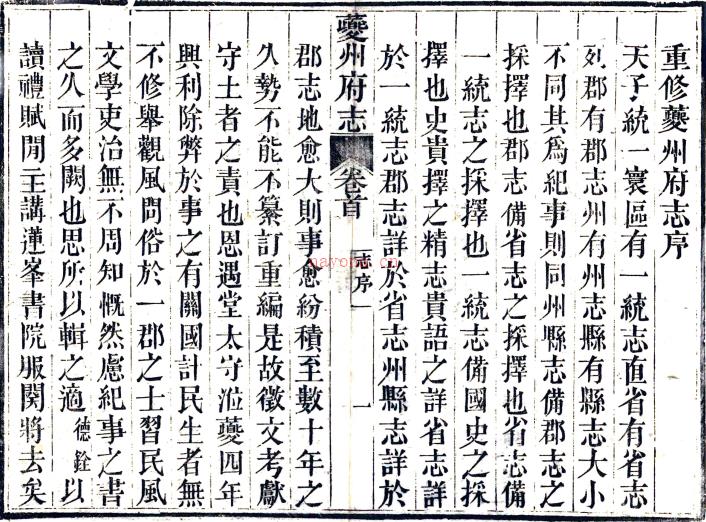 重修夔州府志序
天子統一寰區有一統志直省有省志
列郡有郡志州有州志縣有縣志大小
不同其為紀事則同州縣志備郡志之
採擇也郡志備省志之採擇也省志備
一統志之採擇也一統志備國史之採
擇也史貴擇之精志貴語之詳省志詳
於一統志郡志詳於省志州縣志詳於
夔州府志
卷首
序一
一
郡志地愈大則事愈紛積至數十年之
久勢不能不纂訂重編是故徵文考獻
守土者之責也恩遇堂太守涖夔四年
興利除弊於事之有關國計民生者無
不修舉觀風問俗於一郡之士習民風
文學吏治無不周知慨然慮紀事之書
之久而多闕也思所以輯之適德銓以
讀禮賦閒主講蓮峯書院服闋將去矣
nayona.cn